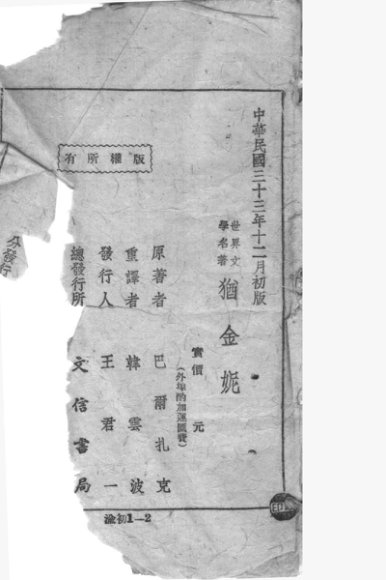 中華民國三十三年十二月初版
世界文學名著
猶金妮
實價　元
(外埠酌加運匯費)
原著者　巴爾扎克
重譯者　韓雲波
發行人　王君一
總發行所　文信書局
分發行
版權所有
渝初1—2